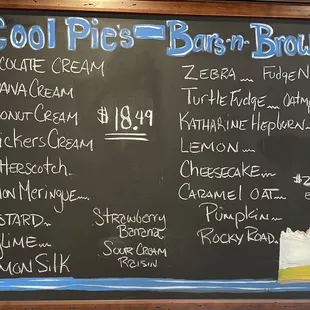 Cool Pie's - Bars-n-Brow
OCOLATE CREAM
ANA CREAM
ONUT CREAM
ICKERS CREAM
TERSCOTCH
ON MERINGUE
STARD
LIME
MON SILK
$18.49
STRAWBERRY
BANANA
SOUR CREAM
RAISIN
ZEBRA FUDGE N
TURTLE FUDGE OATM
KATHARINE HEPBURN
LEMON
CHEESECAKE
CARAMEL OAT
PUMPKIN
ROCKY ROAD
$2